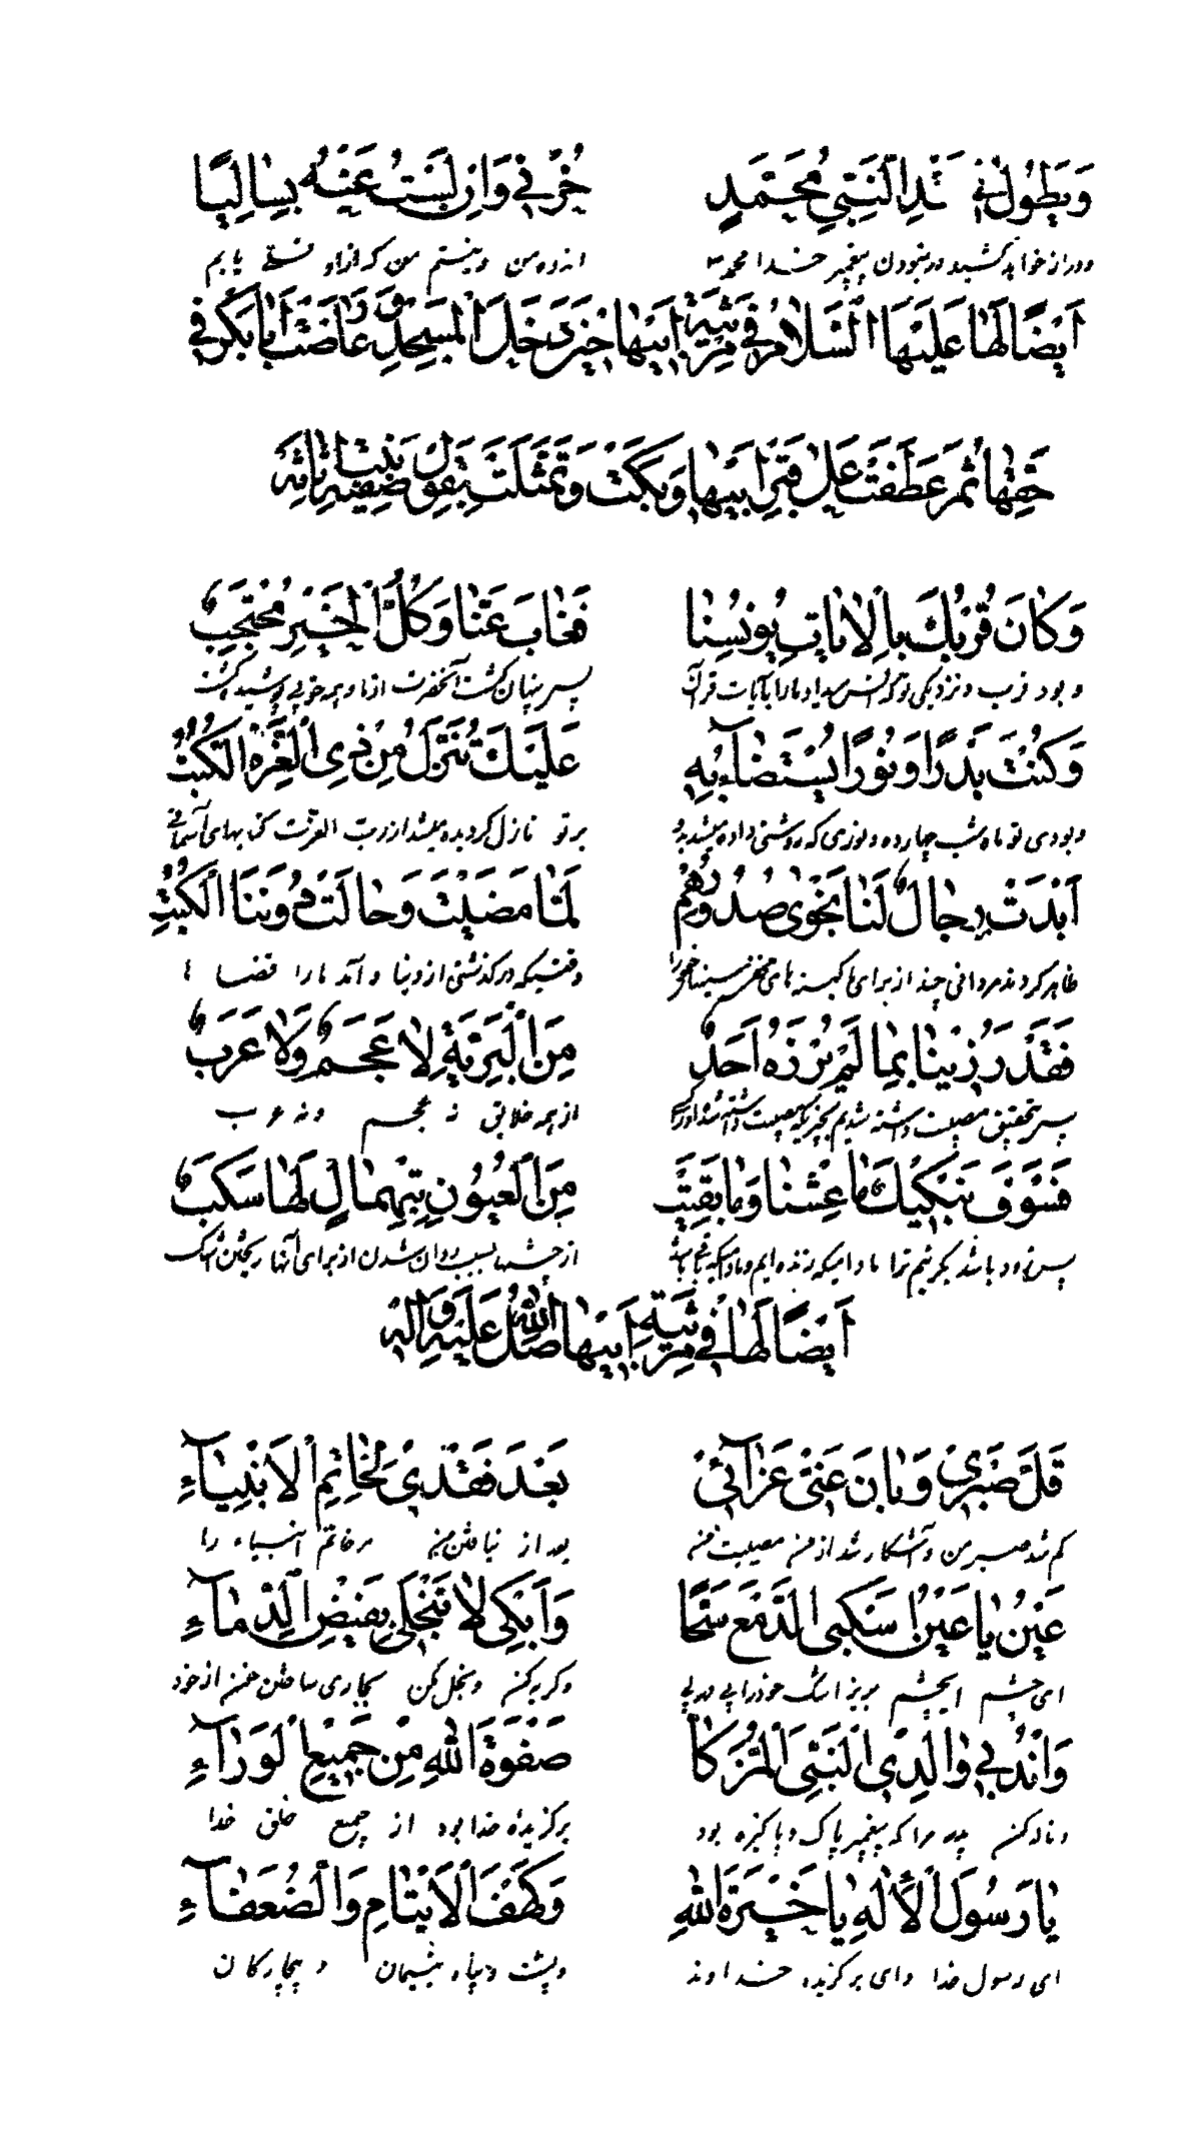 وَيَطُولُ فِي فَقْدِ النَّبِيِّ مُحَمَّدٍ حُزْنِي وَإِنْ لَسْتُ عَنْهُ بِسَالِيًا
و دراز خواهد کشید در نبودن پیغمبر خدا محمد اندوه من و نیستم من که از او تسلی یابم
أَيْضًا لَهَا عَلَيْهَا السَّلَامُ فِي مَرْثِيَةِ أَبِيهَا حِينَ دَخَلَ الْمَسْجِدِ وَقَدْ غَاضَتْ أَبَابَكْرٍ فِي
حَقِّهَا ثُمَّ عَطَفَتْ عَلَى قَبْرِ أَبِيهَا وَبَكَتْ وَتَمَثَّلَتْ بِقَوْلِ صَفِيَّةَ
وَكَانَ قُرْبُكَ بِالْآيَاتِ يُونِسُنَا فَغَابَ عَنَّا وَكُلُّ الْخَيْرِ مُحْتَجِبٌ
و بود قرب و نزدیکی تو که انس میداد ما را بآیات قرآن پس پنهان گشت آنحضرت از ما و همه خوبی پوشیده گشت
وَكُنْتَ بَدْرًا وَنُورًا يُسْتَضَاءُ بِهِ عَلَيْكَ تُنَزَّلُ مِنْ ذِي الْعِزَّةِ الْكُتُبُ
و بودی تو ماه شب چهارده و نوری که روشنی داده میشد بر تو نازل گردیده میشد از رب العزت کتابهای آسمانی
أَبْدَتْ رِجَالٌ لَنَا نَجْوَى صُدُورُهُمْ لَمَّا مَضَيْتَ وَحَالَتْ دُونَنَا الْكُتُبُ
ظاهر کردند مردانی چند از برای ما کینه های سینه خود را وقتیکه درگذشتی از دنیا و آمد ما را قضا ها
فَقَدْ رُزِينَا بِمَا لَمْ يُرْزَهُ أَحَدٌ مِنَ الْبَرِيَّةِ لَا عَجَمٌ وَلَا عَرَبٌ
پس بتحقیق مصیبت داشته شدیم بچیزیکه مصیبت داشته نشد از همه خلایق نه عجم و نه عرب
فَسَوْفَ نَبْكِيكَ مَا عِشْنَا وَمَا بَقِيَتْ مِنَ الْعُيُونِ بِتِهْمَالٍ لَهَا سَكَبٌ
پس زود باشد بگرییم ترا مادامیکه زنده ایم و مادامیکه از چشمها بسبب روان شدن از برای آنها ریختن اشک
أَيْضًا لَهَا فِي مَرْثِيَةِ أَبِيهَا صَلَّى اللهُ عَلَيْهِ وَآلِهِ
قَلَّ صَبْرِي وَبَانَ عَنِّي عَزَائِي بَعْدَ فَقْدِي لِخَاتِمِ الْأَنْبِيَاءِ
کم شد صبر من و آشکار شد از من مصیبت من بعد از نیافتن من مر خاتم انبیاء را
عَيْنُ يَا عَيْنُ اسْكُبِي الدَّمْعَ سَحًّا وَابْكِي لَا تَبْخَلِي بِفَيْضِ الدِّمَاءِ
ای چشم ایچشم بریز اشک خود را پی در پی و گریه کن و بخل مکن بجاری ساختن خون از خود
وَانْدُبِي وَالِدِي النَّبِيَّ الْمُزَكَّا صَفْوَةَ اللهِ مِنْ جَمِيعِ الْوَرَاءِ
و ناله کن پدر مرا که پیغمبر پاک و پاکیزه بود برگزیده خدا بود از جمیع خلق خدا
يَا رَسُولَ الْإِلَهِ يَا خَيْرَةَ اللهِ وَكَهْفَ الْأَيْتَامِ وَالضُّعَفَاءِ
ای رسول خدا و ای برگزیده خداوند و پشت و پناه یتیمان و بیچارگان